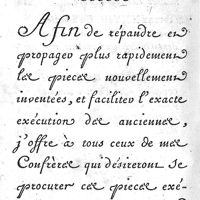 Afin de répandre et
propager plus rapidement
les pieces nouvellement
inventées, et faciliter l'exacte
exécution des anciennes,
j'offre à tous ceux de mes
Confrères qui désireront se
procurer ces pieces exé-